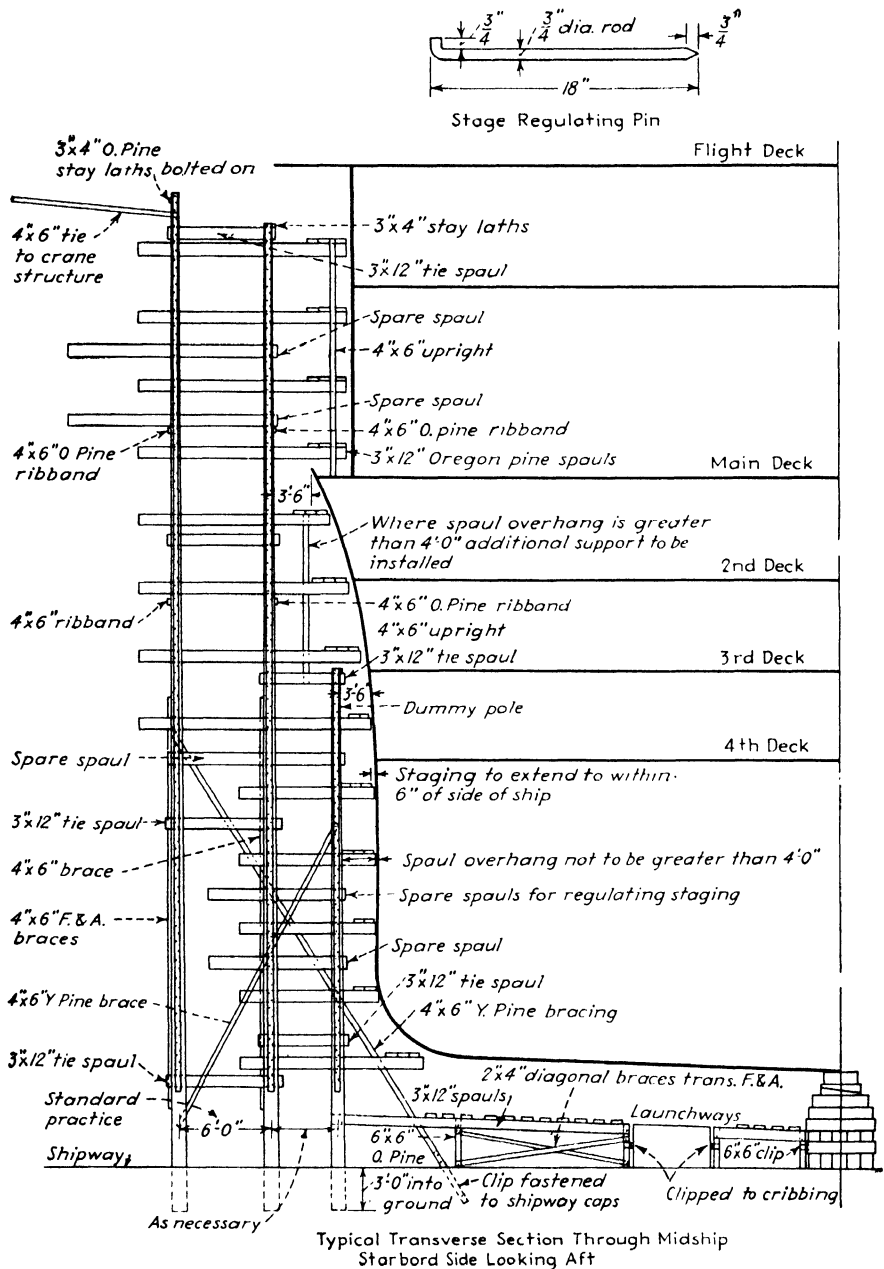 3/4"
3/4" dia. rod
3/4"
18"
Stage Regulating Pin
3"x4" O. Pine
stay laths, bolted on
Flight Deck
4"x6" tie
to crane
structure
3"x4" stay laths
3"x12" tie spaul
Spare spaul
4"x6" upright
Spare spaul
4"x6" O. pine ribband
4"x6" O Pine
ribband
3"x12" Oregon pine spauls
Main Deck
3'-6"
Where spaul overhang is greater
than 4'-0" additional support to be
installed
2nd Deck
4"x6" ribband
4"x6" O. Pine ribband
4"x6" upright
3"x12" tie spaul
3rd Deck
3'-6"
Dummy pole
4th Deck
Spare spaul
Staging to extend to within
6" of side of ship
3"x12" tie spaul
4"x6" brace
Spaul overhang not to be greater than 4'-0"
Spare spauls for regulating staging
4"x6" F. & A.
braces
Spare spaul
3"x12" tie spaul
4"x6" Y Pine brace
4"x6" Y. Pine bracing
3"x12" tie spaul
2"x4" diagonal braces trans. F. & A.
3"x12" spauls
Standard
practice
Launchways
6'-0"
6"x6"
O. Pine
6"x6" clip
Shipway
3'-0" into
ground
Clip fastened
to shipway caps
Clipped to cribbing
As necessary
Typical Transverse Section Through Midship
Starbord Side Looking Aft